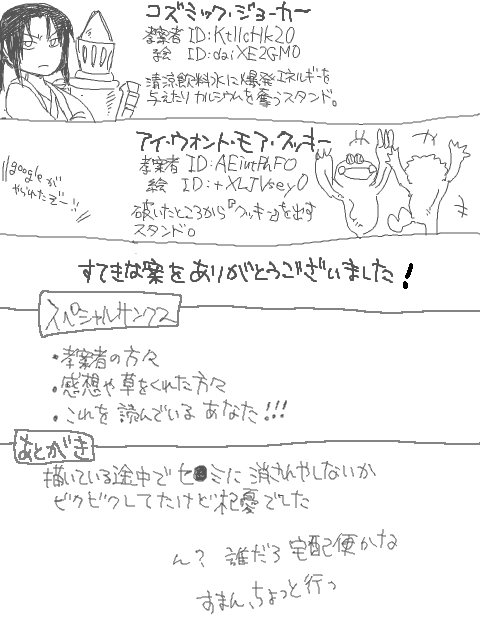 コズミック・ジョーカー
考案者 ID:KtllcHk20
絵 ID:daiXE2GM0
清涼飲料水に爆発エネルギーを
与えたりカルシウムを奪うスタンド。
アイ・ウォント・モア・クッキー
考案者 ID:AEiutPhF0
絵 ID:+XLJVsey0
破いたところから『クッキー』を出す
スタンド。
googleが
やられたぞー!!
すてきな案をありがとうございました!
スペシャルサンクス
・考案者の方々
・感想や草をくれた方々
・これを読んでいるあなた!!!
あとがき
描いている途中でセ●ミに消されやしないか
ビクビクしてたけど杞憂でした
ん? 誰だろ 宅配便かな
すまん、ちょっと行っ